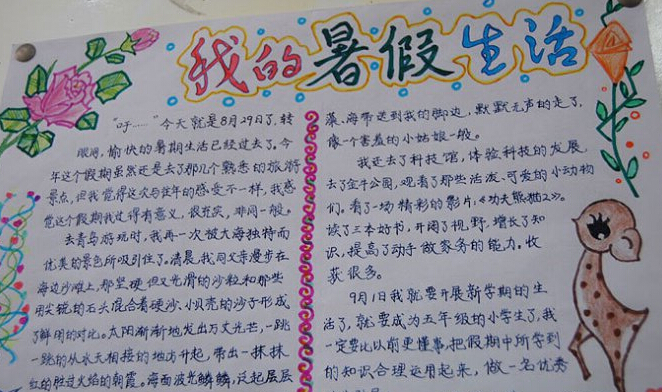 我的暑假生活
“吁……”今天就是8月29日了,转
眼间,愉快的暑期生活已经过去了。今
年这个假期虽然还是去了那几个熟悉的旅游
景点,但我觉得这次与往年的感受不一样,我感
觉这个假期我过得有意义,很充实,非同一般。
去青岛游玩时,我再一次被大海独特而
优美的景色所吸引住了。清晨,我同父亲漫步在
海边沙滩上,那坚硬但又光滑的沙粒和那些
用尖锐的石头混合着硬沙、小贝壳的沙子形成
了鲜明的对比。太阳渐渐地发出万丈光芒,一跳
一跳的从水天相接的地方升起,带出一抹抹
红的胜过火焰的朝霞。海面波光鳞鳞,泛起层层
藻、海带送到我的脚边,默默无声的走了,
像一个害羞的小姑娘一般。
我还去了科技馆,体验科技的发展,
去了金牛公园,观看了那些活泼、可爱的小动物
们。看了一场精彩的影片,《功夫熊猫2》。
读了三本好书,开阔了视野,增长了知
识,提高了动手做家务的能力。收
获很多。
9月1日我就要开展新学期的生
活了,就要成为五年级的小学生了,我
一定要比以前更懂事,把假期中所学到
的知识合理运用起来,做一名优秀